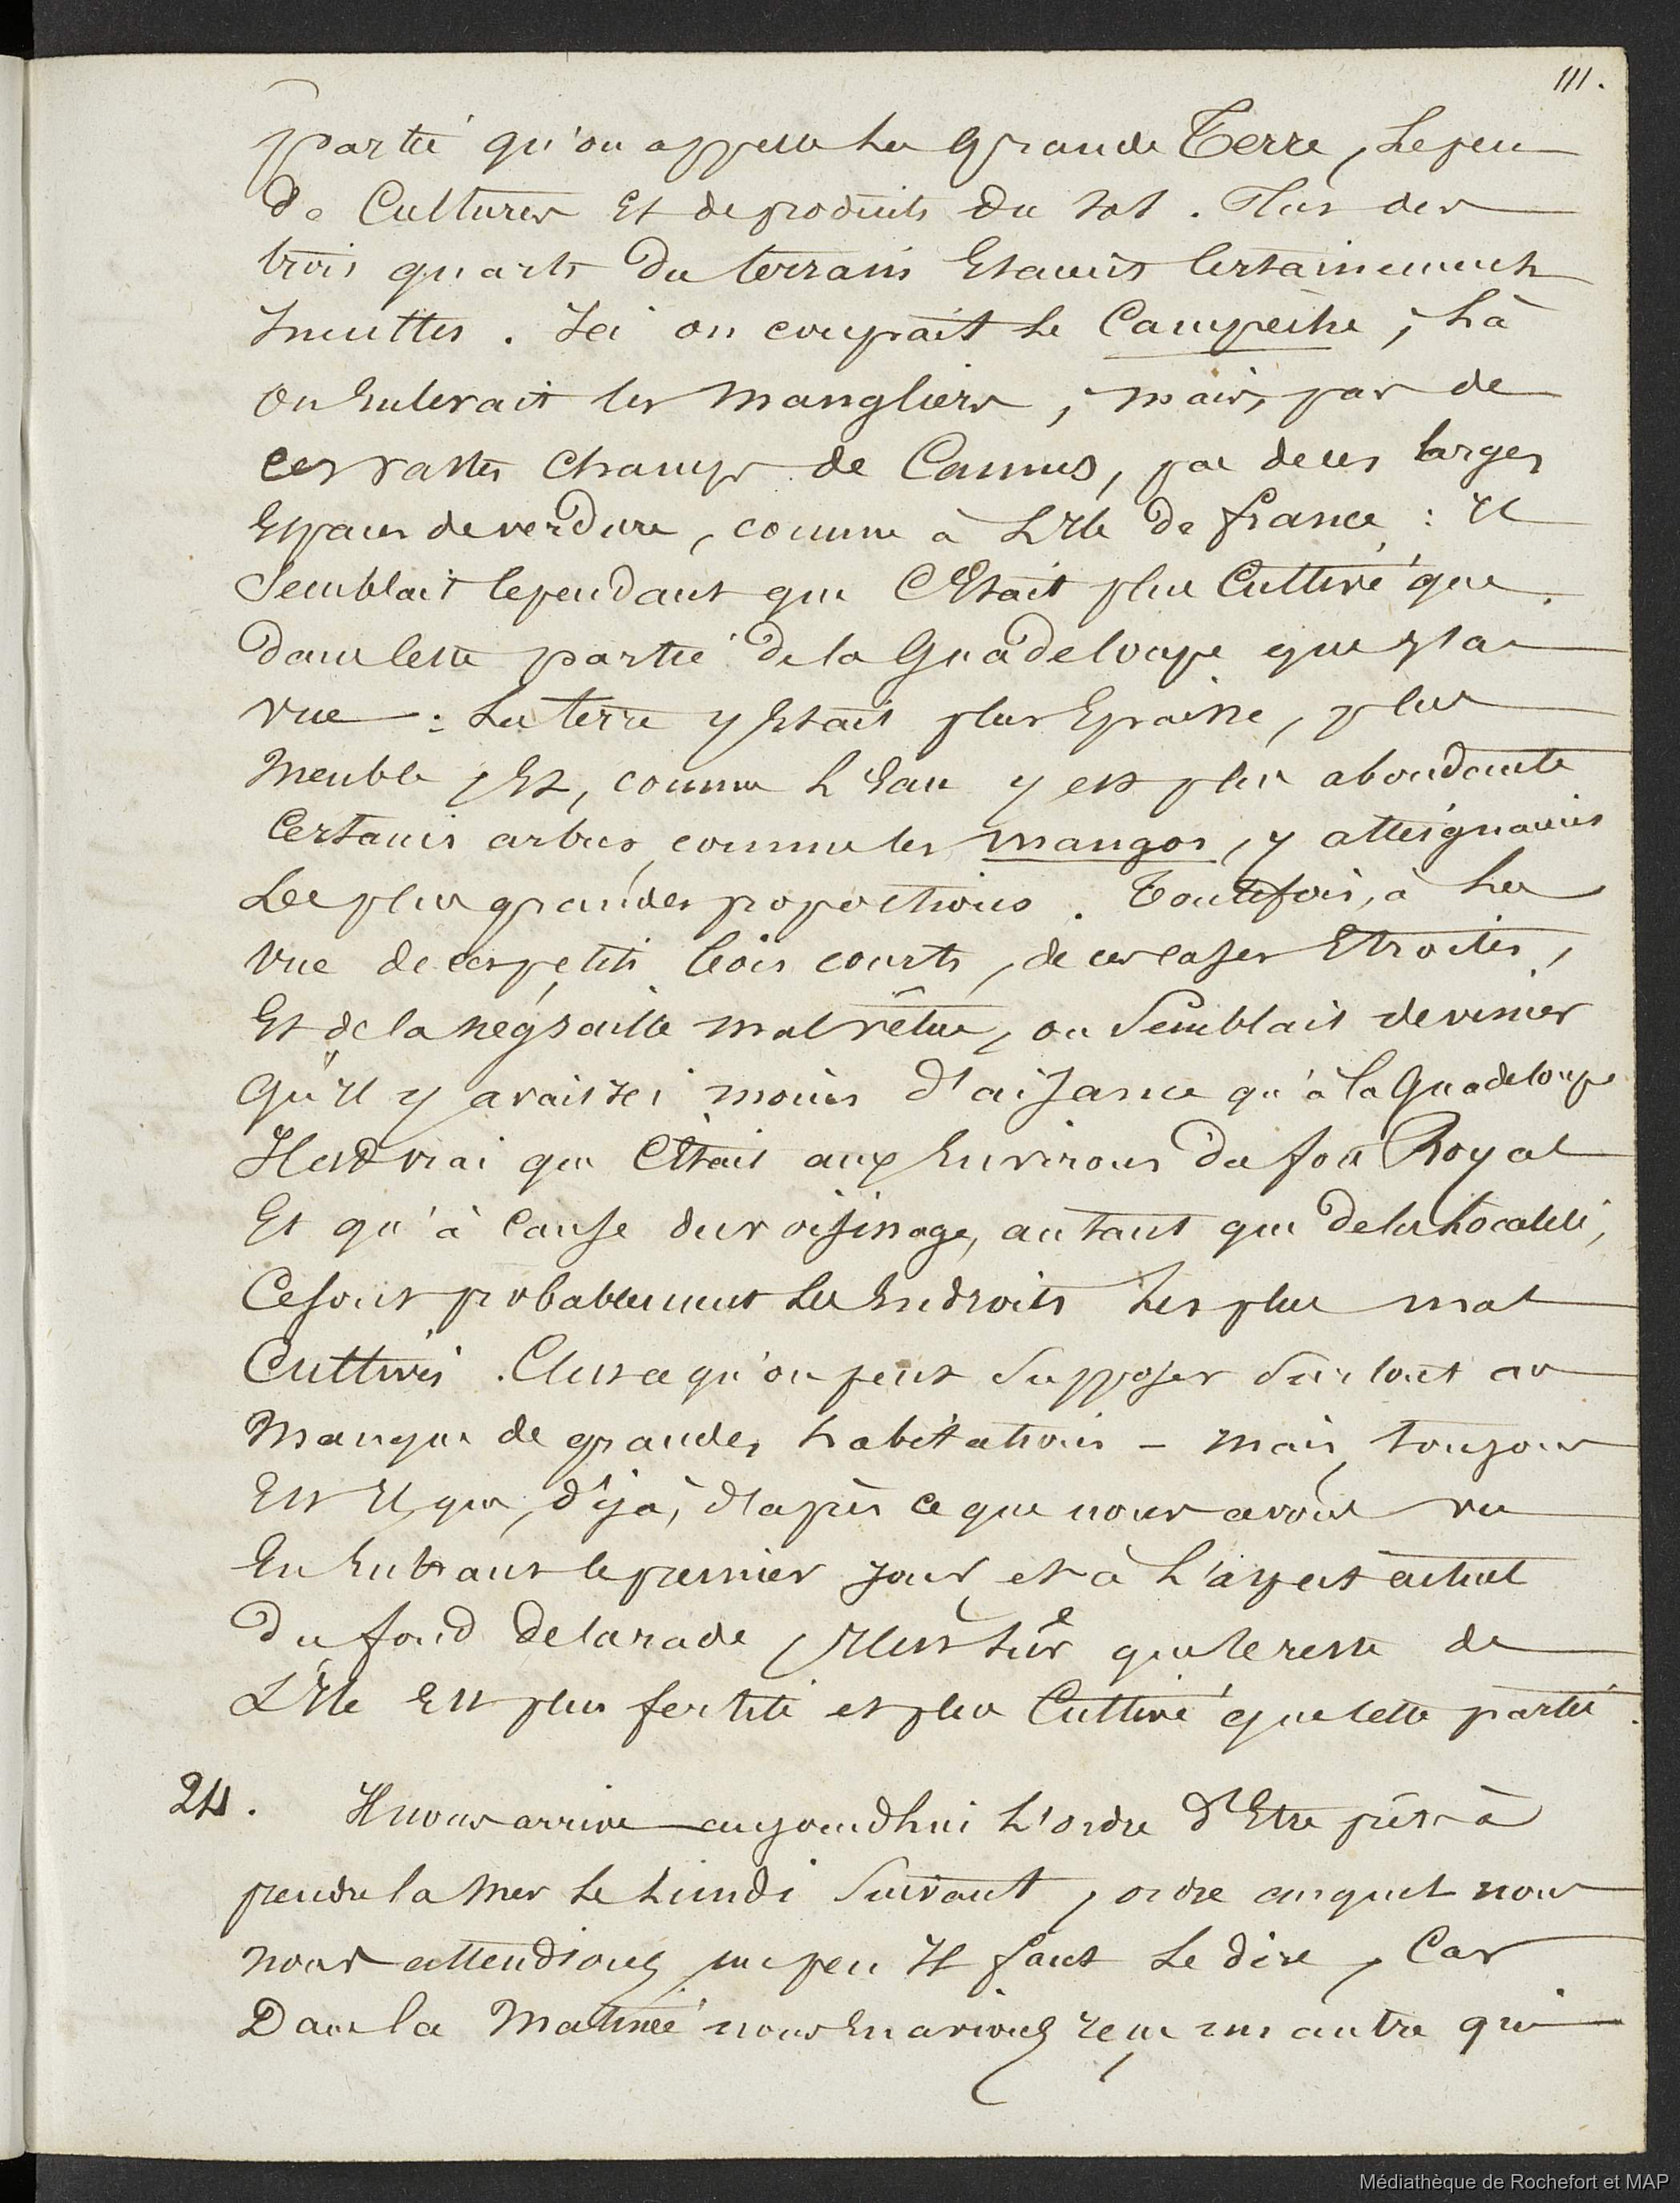 111.
partie qu'on appelle La Grande Terre, Le peu
de Cultures Et de produits du sol. Plus des
trois quarts du terrain Etaient Certainement
Incultes. Ici on coupait Le Campêche ; Là
on Enlevait les Mangliers ; mais, pas de
ces vastes Champs de Cannes, pas de ces larges
Espaces de verdure, comme à L'Ile de france : Il
Semblait Cependant que C'Etait plus Cultivé que
dans Cette partie de la Guadeloupe que j'ai
vue : La terre y Etait plus Epaisse, plus
Meuble, Et, comme L'Eau y est plus abondante
Certains arbres, comme les mangos, y atteignaient
Les plus grandes proportions. Toutefois, à La
vue de ces petits bois courts, de ces cases Etroites,
Et de la négraille mal vêtue, on Semblait deviner
Qu'Il y avait Ici moins d'aisance qu'à la Guadeloupe
Il est vrai que C'Etait aux Environs du fort Royal
Et qu'à Cause du voisinage, autant que de la Localité,
Ce sont probablement Les Endroits Les plus mal
Cultivés. C'est ce qu'on peut Supposer Surtout au
Manque de grandes habitations – Mais, toujours
Est Il que, déjà, d'après ce que nous avons vu
En Entrant le premier jour, et à L'aspect actuel
du fond de la rade, Il est sûr que le reste de
L'Ile Est plus fertile et plus Cultivé que cette partie.
24. Il nous arrive aujourdhui L'ordre d'Etre prêt à
prendre la Mer Le Lundi Suivant, ordre auquel nous
nous attendions un peu Il faut Le dire, Car
Dans la Matinée nous En avions reçu un autre qui
Médiathèque de Rochefort et MAP